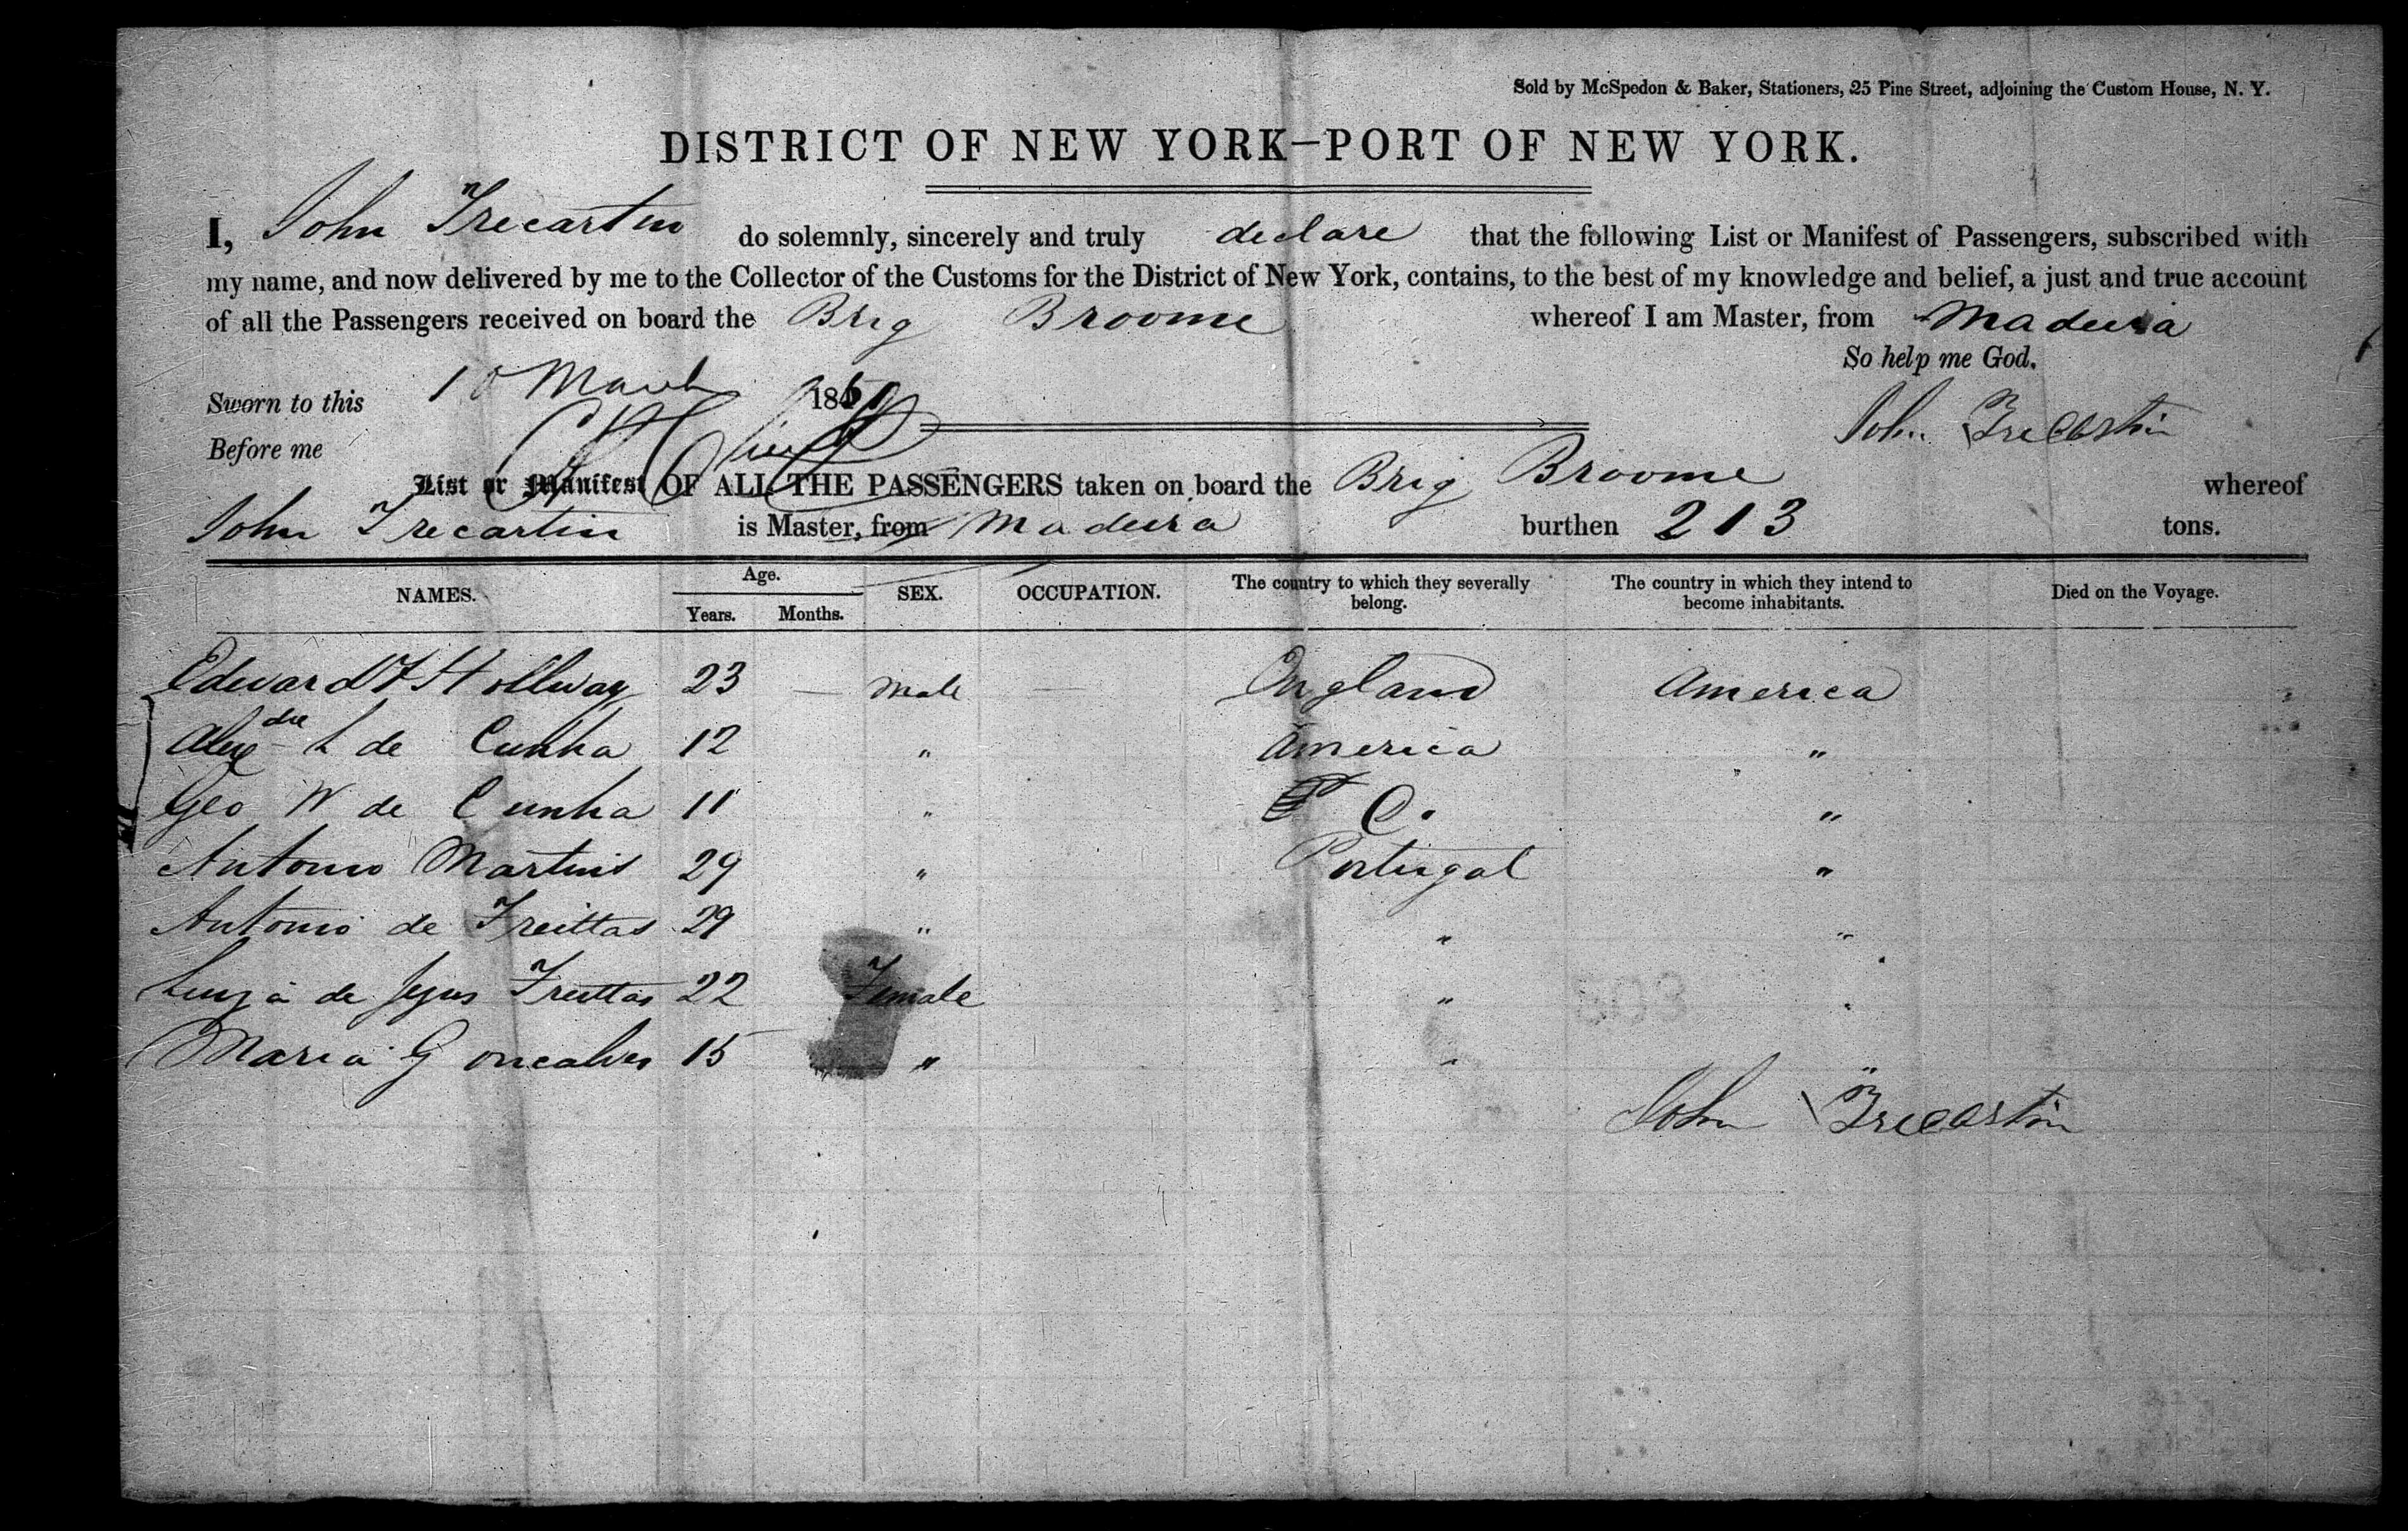 Sold by McSpedon & Baker, Stationers, 25 Pine Street, adjoining the Custom House, N. Y.
DISTRICT OF NEW YORK—PORT OF NEW YORK.
I, John Trecartin do solemnly, sincerely and truly declare that the following List or Manifest of Passengers, subscribed with
my name, and now delivered by me to the Collector of the Customs for the District of New York, contains, to the best of my knowledge and belief, a just and true account
of all the Passengers received on board the Brig Broome whereof I am Master, from Madeira
So help me God.
Sworn to this 10 March 1851
John Trecartin
Before me
List or Manifest OF ALL THE PASSENGERS taken on board the Brig Broome whereof
John Trecartin is Master, from Madeira burthen 213 tons.
NAMES. Age. Years. Months. SEX. OCCUPATION. The country to which they severally belong. The country in which they intend to become inhabitants. Died on the Voyage.
Edward F Hollway 23 — Male — England America
Alexdre L de Cunha 12 " America "
Geo W de Cunha 11 " C. "
Antonio Martins 29 " Portugal "
Antonio de Freittas 29 " " "
Luiza de Jezus Freittas 22 Female " "
Maria Goncalves 15 " " "
John Trecartin